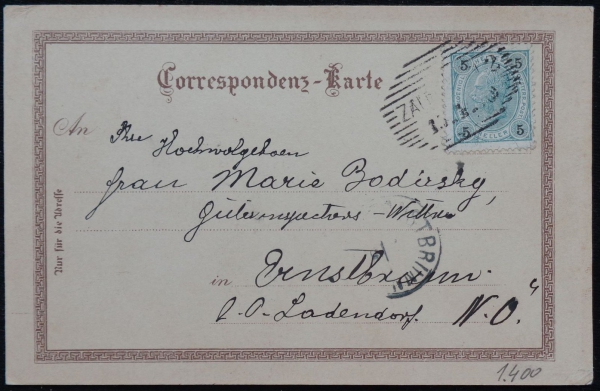 Correspondenz-Karte
5 5
ZAU
5 5
An Ihre Hochwolgeboren
Frau Marie Bodirsky,
Güterinspectors-Witwe
TBRU
in Ernstbrunn.
P.O. Ladendorf. N.Ö.
Nur für die Adresse
1.400